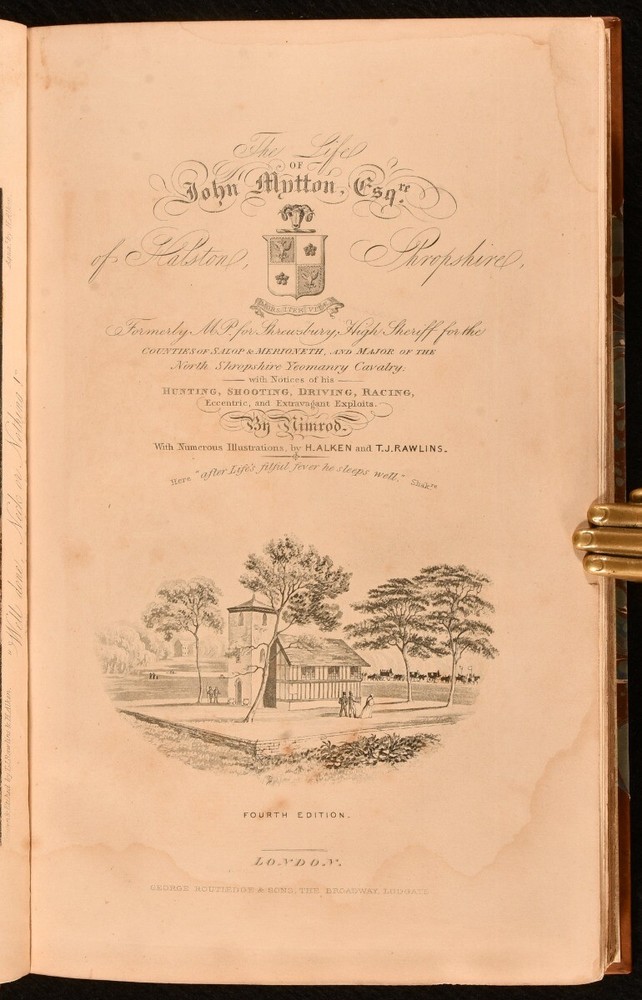 The Life
OF
John Mytton, Esqre.
of Halston, Shropshire,
Formerly M.P. for Shrewsbury, High Sheriff for the
COUNTIES OF SALOP & MERIONETH, AND MAJOR OF THE
North Shropshire Yeomanry Cavalry;
with Notices of his
HUNTING, SHOOTING, DRIVING, RACING,
Eccentric, and Extravagant Exploits.
By Nimrod.
With Numerous Illustrations, by H. ALKEN and T.J. RAWLINS.
Here "after Life's fitful fever he sleeps well." Shakre
FOURTH EDITION.
LONDON.
GEORGE ROUTLEDGE & SONS, THE BROADWAY, LUDGATE.
"Well done, Neck or Nothing!"